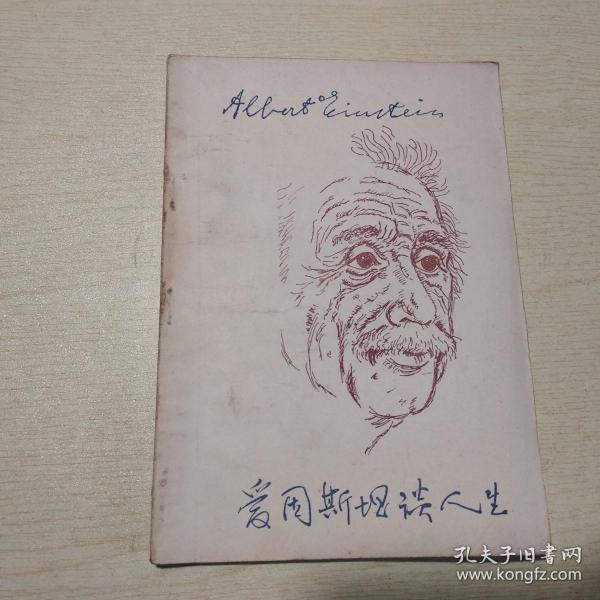 Albert Einstein
爱因斯坦谈人生
孔夫子旧书网
www.kongfz.com